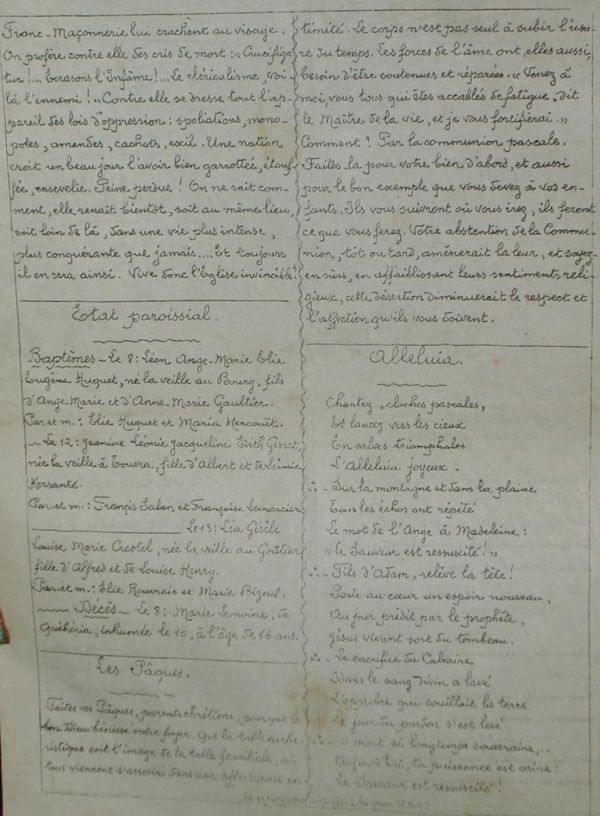 Franc-Maçonnerie lui crachent au visage.
On profère contre elle des cris de mort : « Crucifiga-
tur !... Écrasons l'Infâme !... Le cléricalisme, voi-
là l'ennemi ! » Contre elle se dresse tout l'ap-
pareil des lois d'oppression : spoliations, mono-
poles, amendes, cachots, exil. Une nation
croit un beau jour l'avoir bien garrottée, étouf-
fée, ensevelie. Peine perdue ! On ne sait com-
ment, elle renaît bientôt, soit au même lieu,
soit loin de là, dans une vie plus intense,
plus conquérante que jamais.... Et toujours
il en sera ainsi. Vive donc l'Église invincible !
Etat paroissial.
Baptêmes - Le 8 : Léon Ange-Marie Elie
Eugène Huguet, né la veille au Bourg, fils
d'Ange-Marie et d'Anne-Marie Gaultier.
Par. et m. : Elie Huguet et Maria Hercouët.
- Le 12 : Jeannine Léonie Jacqueline Edith
née la veille à fille d'Albert et de Léonie
Kersanté.
Par. et m. : Francis Jalan et Françoise Lemercier
Le 13 : Léa Gisèle
Louise Marie Crestel, née la veille au
fille d'Alfred et de Louise Henry.
Par. et m. : Elie Rouxrais et Marie Bizeul.
Décès - Le 8 : Marie Lemoine, de
inhumée le 10, à l'âge de 66 ans.
Les Pâques.
Faites vos Pâques, parents chrétiens, pour que le
bon Dieu bénisse votre foyer. Que la table eucha-
ristique soit l'image de la table familiale, où
tous viennent s'asseoir dans une affectueuse in-
timité. Le corps n'est pas seul à subir l'usu-
re du temps. Les forces de l'âme ont, elles aussi,
besoin d'être soutenues et réparées. « Venez à
moi, vous tous qui êtes accablés de fatigue, dit
le Maître de la vie, et je vous fortifierai. »
Comment ? Par la communion pascale.
Faites-la pour votre bien d'abord, et aussi
pour le bon exemple que vous devez à vos en-
fants. Ils vous suivront où vous irez, ils feront
ce que vous ferez. Votre abstention de la Commu-
nion, tôt ou tard, amènerait la leur, et soyez-
en sûrs, en affaiblissant leurs sentiments reli-
gieux, cette désertion diminuerait le respect et
l'affection qu'ils vous doivent.
Alleluia.
Chantez, cloches pascales,
Et lancez vers les cieux
En salves triomphales
L'Alleluia joyeux.
Sur la montagne et dans la plaine
Tous les échos ont répété
Le mot de l'Ange à Madeleine :
« Le Sauveur est ressuscité ! »
Fils d'Adam, relève la tête !
Porte au cœur un espoir nouveau.
Au jour prédit par le prophète,
Jésus vivant sort du tombeau.
Le sacrifice du Calvaire
Dans le sang divin a lavé
L'opprobre qui souillait la terre
Le jour du pardon s'est levé
O mort si longtemps souveraine,
Aujourd'hui, ta puissance est vaine :
Le Sauveur est ressuscité !